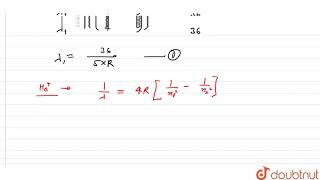 36
λ₁ = 36 / 5×R — ①
He⁺ → 1/λ = 4R [ 1/n₁² - 1/n₂² ]
doubtnut